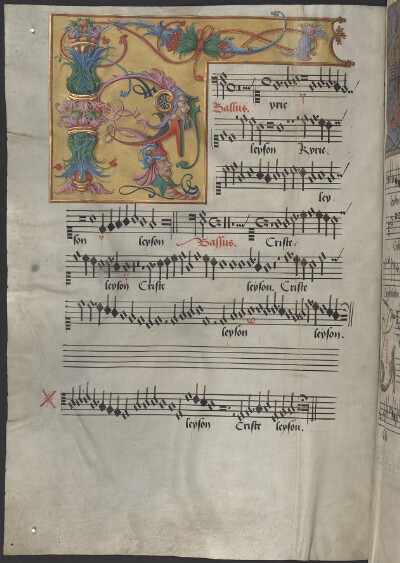 K
Bassus. yrie
leyson Kyrie.
ley
son leyson Bassus. Criste.
leyson Criste leyson. Criste
leyson leyson.
leyson Criste leyson.